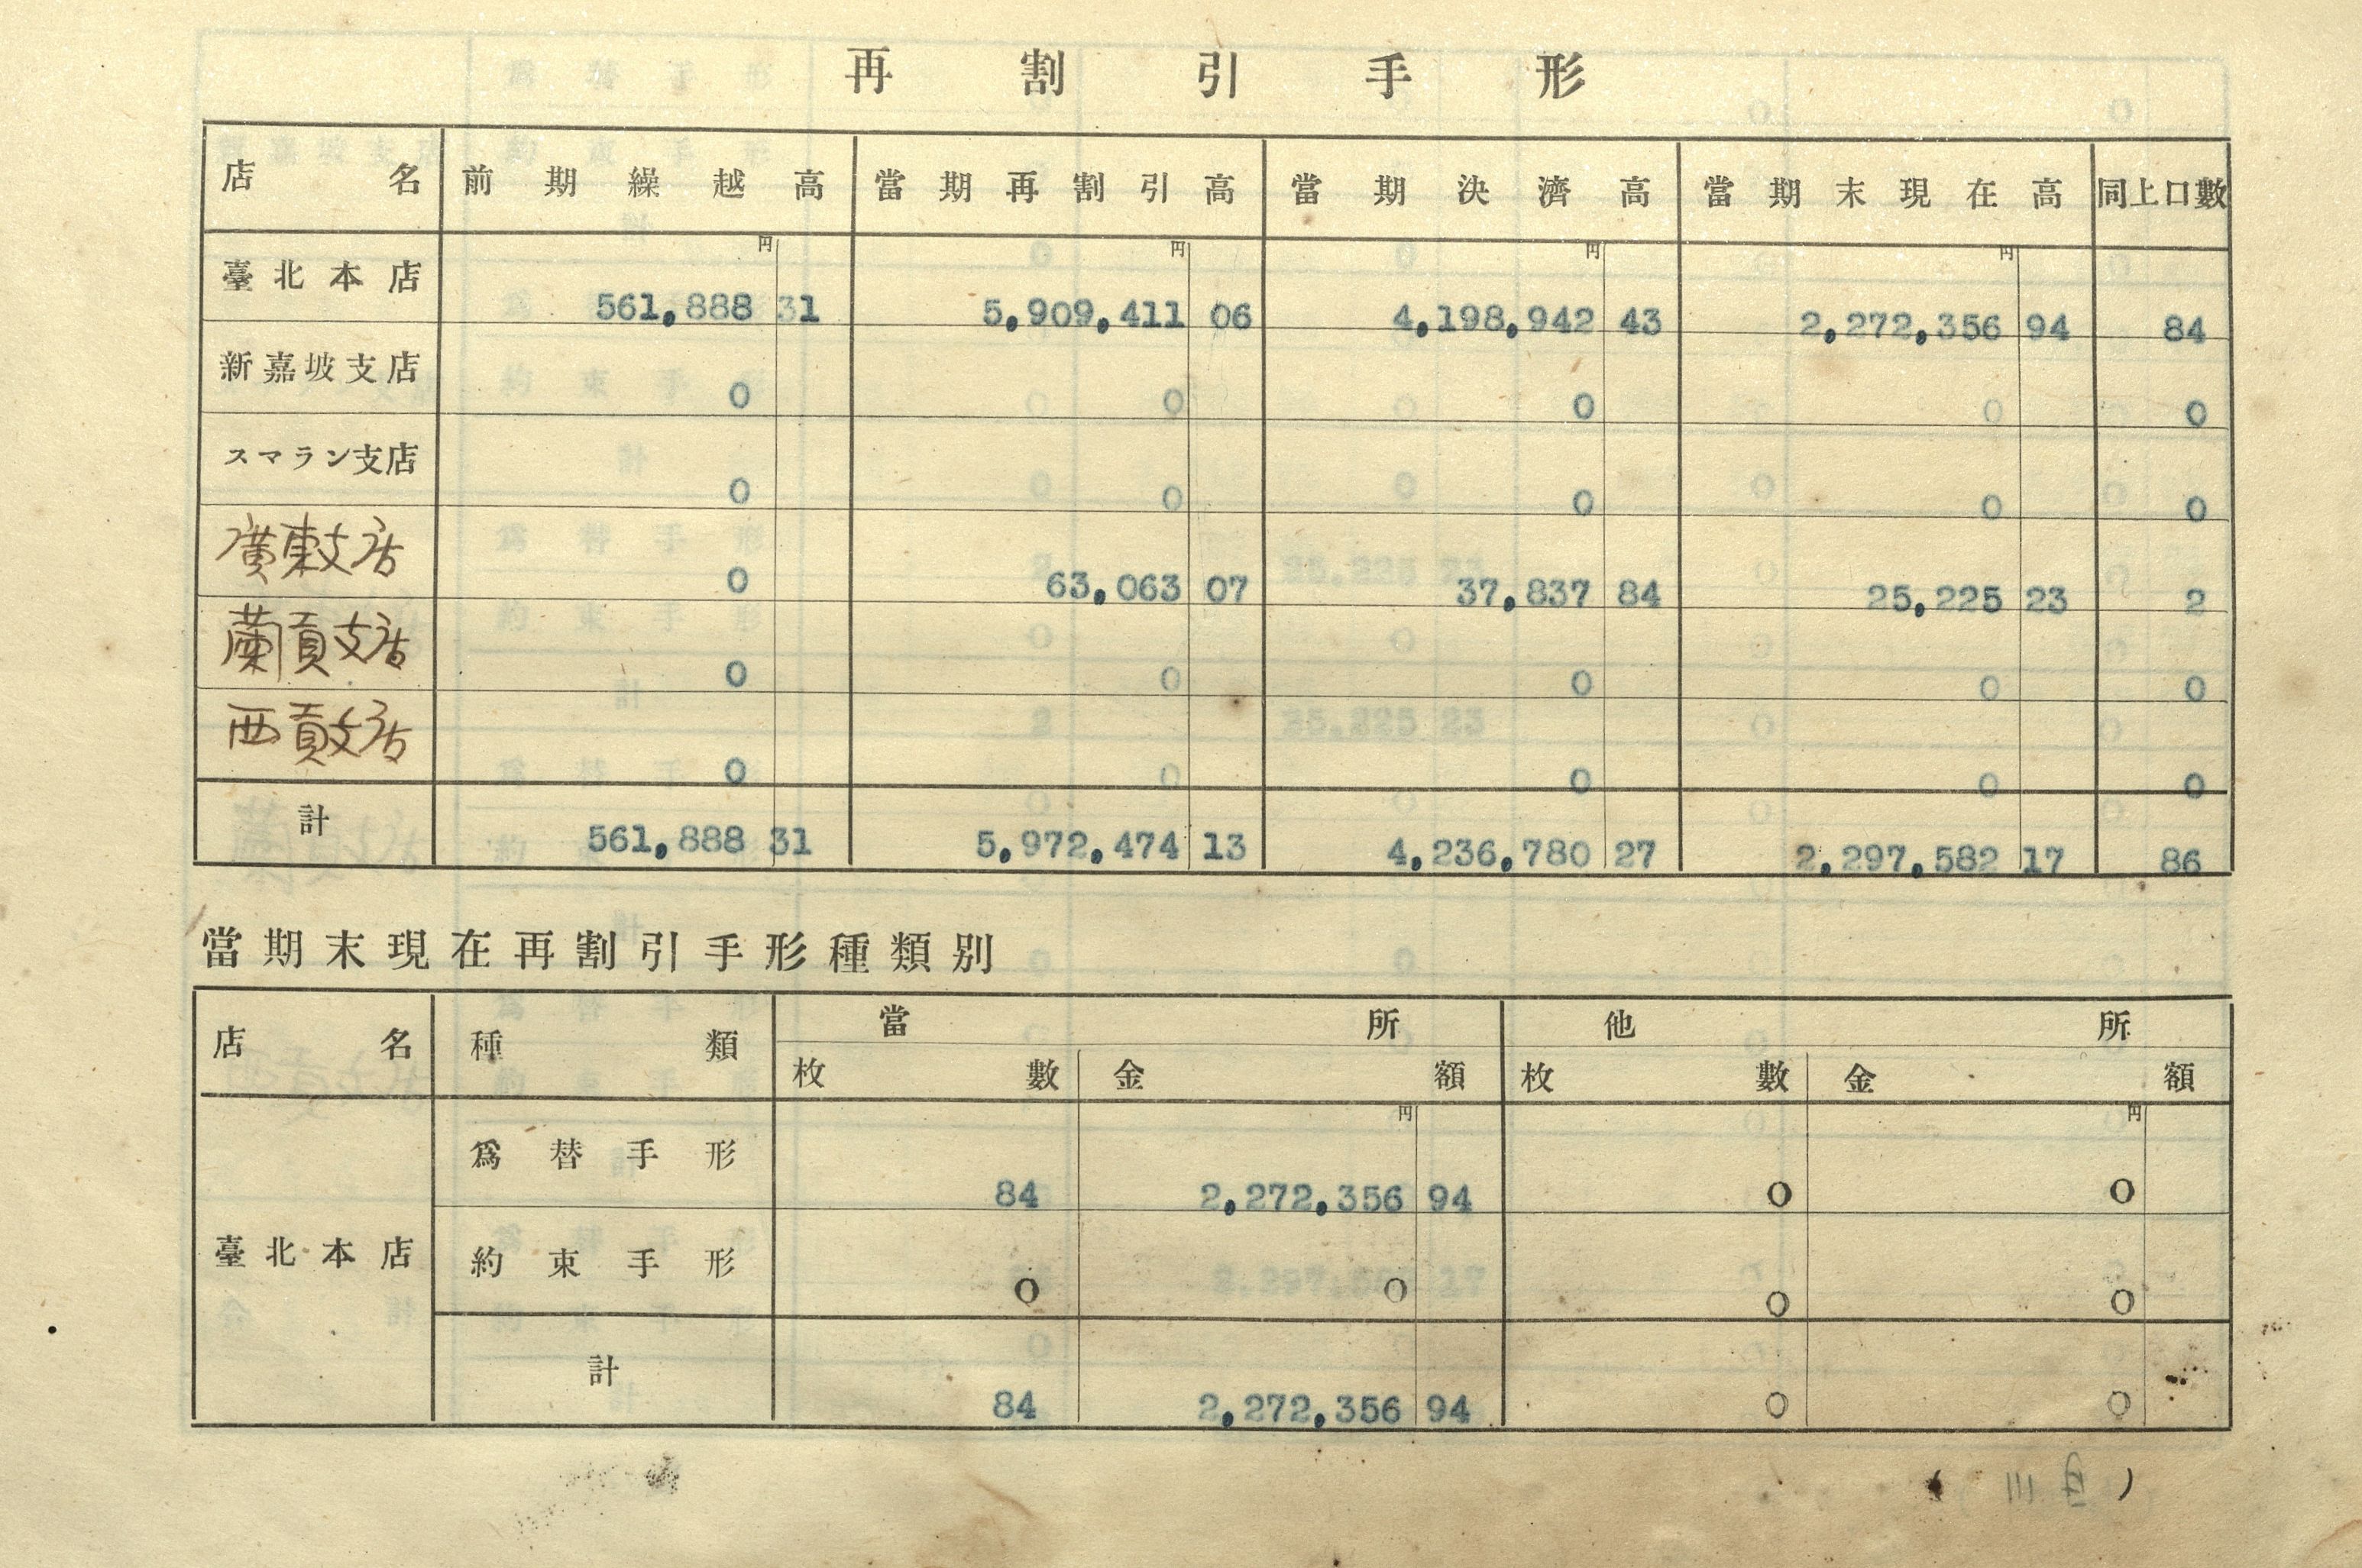 再割引手形
店名 前期繰越高 當期再割引高 當期決濟高 當期末現在高 同上口數
円 円 円 円
臺北本店 561,888 31 5,909,411 06 4,198,942 43 2,272,356 94 84
新嘉坡支店 0 0 0 0 0
スマラン支店 0 0 0 0 0
廣東支店 0 63,063 07 37,837 84 25,225 23 2
蘭貢支店 0 0 0 0 0
西貢支店 0 0 0 0 0
計 561,888 31 5,972,474 13 4,236,780 27 2,297,582 17 86
當期末現在再割引手形種類別
店名 種類 當所 他所
枚數 金額 枚數 金額
円 円
爲替手形 84 2,272,356 94 0 0
臺北本店 約束手形 0 0 0 0
計 84 2,272,356 94 0 0